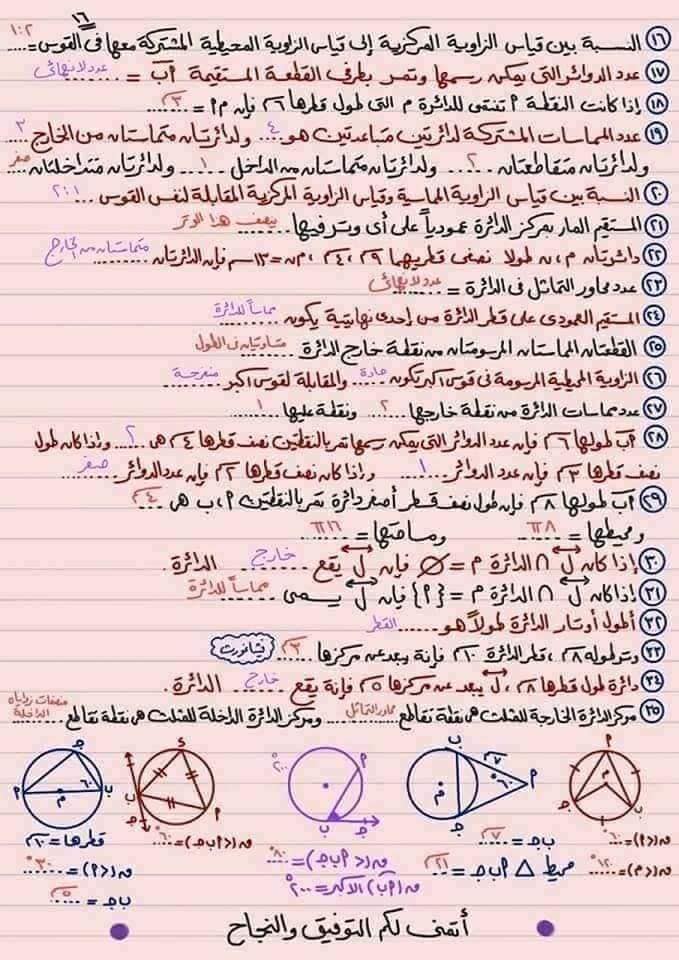 ١٦
١٦ النسبة بين قياس الزاوية المركزية إلى قياس الزاوية المحيطية المشتركة معها فى القوس = .... ١:٢
١٧ عدد الدوائر التى يمكن رسمها وتمر بطرفى القطعة المستقيمة أب = ........ عدد لا نهائى
١٨ إذا كانت النقطة أ تنتمى للدائرة م التى طول قطرها ٦سم فإن م أ = ..٣سم..
١٩ عدد المماسات المشتركة لدائرتين متباعدتين هو ..٤.. ولدائرتان متماستان من الخارج ..٣..
ولدائرتان متقاطعتان ..٢.. ولدائرتان متماستان من الداخل ..١.. ولدائرتان متداخلتان ..صفر..
٢٠ النسبة بين قياس الزاوية المماسية وقياس الزاوية المركزية المقابلة لنفس القوس ... ٢:١
٢١ المستقيم المار بمركز الدائرة عمودياً على أى وتر فيها ........ ينصف هذا الوتر
٢٢ دائرتان م ، ن طولا نصفى قطريهما ٩سم ، ٤سم ، م ن = ١٣سم فإن الدائرتان ........ متماستان من الخارج
٢٣ عدد محاور التماثل فى الدائرة = ........ عدد لا نهائى
٢٤ المستقيم العمودى على قطر الدائرة من إحدى نهايتيه يكون ........ مماساً للدائرة
٢٥ القطعتان المماستان المرسومتان من نقطة خارج الدائرة ........ متساويتان فى الطول
٢٦ الزاوية المحيطية المرسومة فى قوس أكبر تكون ..حادة.. والمقابلة لقوس أكبر ..منفرجة..
٢٧ عدد مماسات الدائرة من نقطة خارجها ..٢.. ونقطة عليها ..١..
٢٨ أب طولها ٦سم فإن عدد الدوائر التى يمكن رسمها تمر بالنقطتين نصف قطرها ٤سم هى ..٢.. وإذا كان طول
نصف قطرها ٣سم فإن عدد الدوائر ..١.. وإذا كان نصف قطرها ٢سم فإن عدد الدوائر ..صفر..
٢٩ أب طولها ٨سم فإن طول نصف قطر أصغر دائرة تمر بالنقطتين أ ، ب هى ..٤سم..
ومحيطها = ..٨π.. ومساحتها = ..١٦π..
٣٠ إذا كان ل ∩ الدائرة م = ∅ فإن ل يقع ..خارج.. الدائرة .
٣١ إذا كان ل ∩ الدائرة م = {أ} فإن ل يسمى ..مماساً للدائرة..
٣٢ أطول أوتار الدائرة طولاً هو ........ القطر
٣٣ وتر طوله ٨سم ، قطر الدائرة ١٠سم فإنة يبعد عن مركزها ..٣سم.. فيثاغورث
٣٤ دائرة طول قطرها ٨سم ، ل يبعد عن مركزها ٥سم فإنة يقع ..خارج.. الدائرة .
٣٥ مركز الدائرة الخارجة للمثلث هى نقطة تقاطع ..محاور التماثل.. ومركز الدائرة الداخلة للمثلث هى نقطة تقاطع ..منصفات زواياه الداخلة..
أ م ب جـ
أ ب جـ م ٧سم ٦٠°
أ ب جـ ٢٠٠°
ء أ ب جـ
جـ أ م ب ٦٠°
ق(<أ) = ..٦٠°..
ق(<م) = ..١٢٠°..
ب جـ = ..٧سم..
محيط △ أ ب جـ = ..٢١سم..
ق(<أ ب جـ) = ..٨٠°..
ق(أب) الأكبر = ..٢٠٠°..
ق(<أ ب جـ) = ..٦٠°..
قطرها = ١٠سم
ق(<أ) = ..٣٠°..
ب جـ = ..٥سم..
أتمنى لكم التوفيق والنجاح